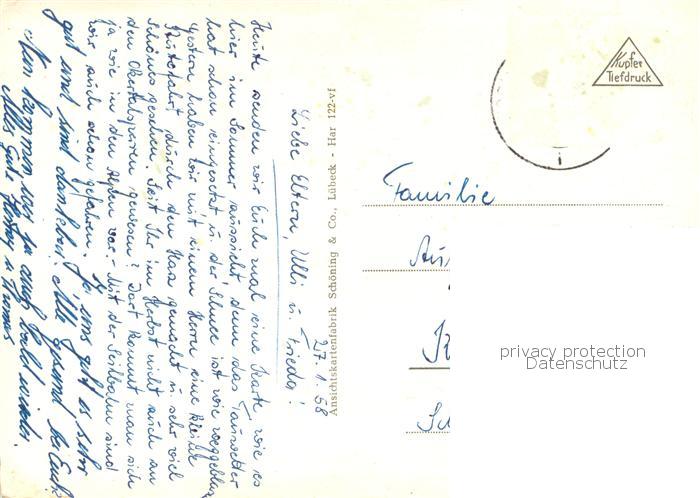 27.1.58
Liebe Eltern, Ulli u. Frieda!
Heute senden wir Euch mal eine Karte wie es
hier im Sommer aussieht, denn das Tauwetter
hat schon eingesetzt u. der Schnee ist wie weggeblasen
Gestern haben wir mit einem Herrn eine kleine
Autofahrt durch den Harz gemacht u. sehr viel
Schönes gesehen. Seit Ihr im Herbst nicht auch an
den Okertalsperren gewesen? Dort kommt man sich
ja wie in den Alpen vor. - Mit der Seilbahn sind
wir auch schon gefahren. Ja, uns geht es sehr
gut und sind dankbar. Alle gesund bei Euch?
Nun kommen wir ja auch bald wieder.
Alles Gute
Ansichtskartenfabrik Schöning & Co., Lübeck - Har 122-vf
Kupfer
Tiefdruck
Familie
privacy protection
Datenschutz